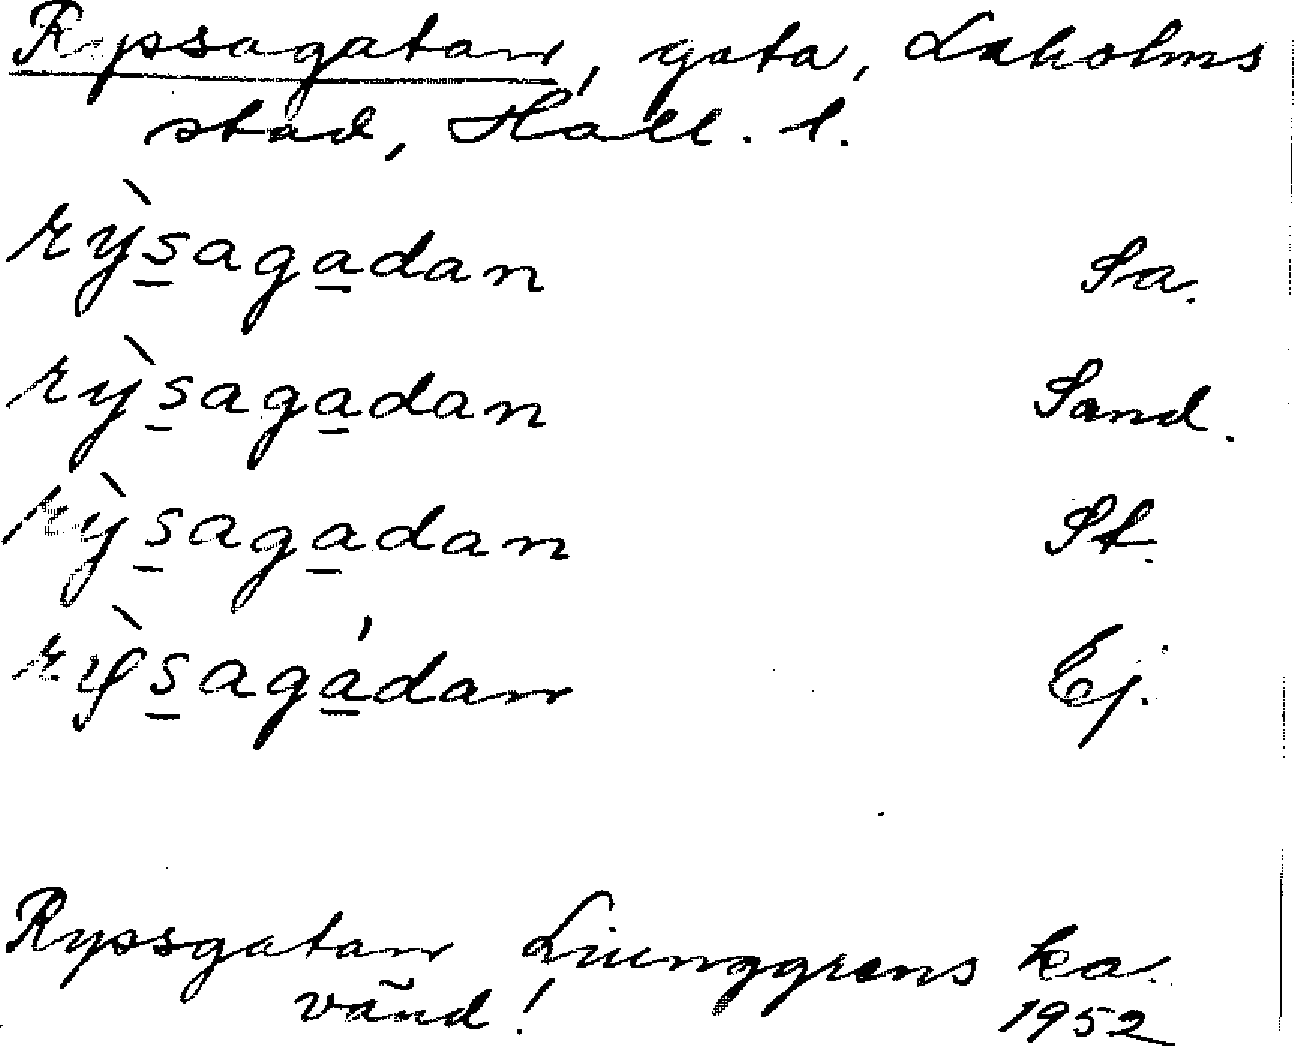 Rypsagatan, gata, Laholms
stad, Hall. l.
rỳs̲aga̲dan Sa.
rỳs̲aga̲dan Sand.
rỳs̲aga̲dan St.
rỳs̲agá̲dan Ej.
Rypsgatan Liunggrens ka.
vänd! 1952